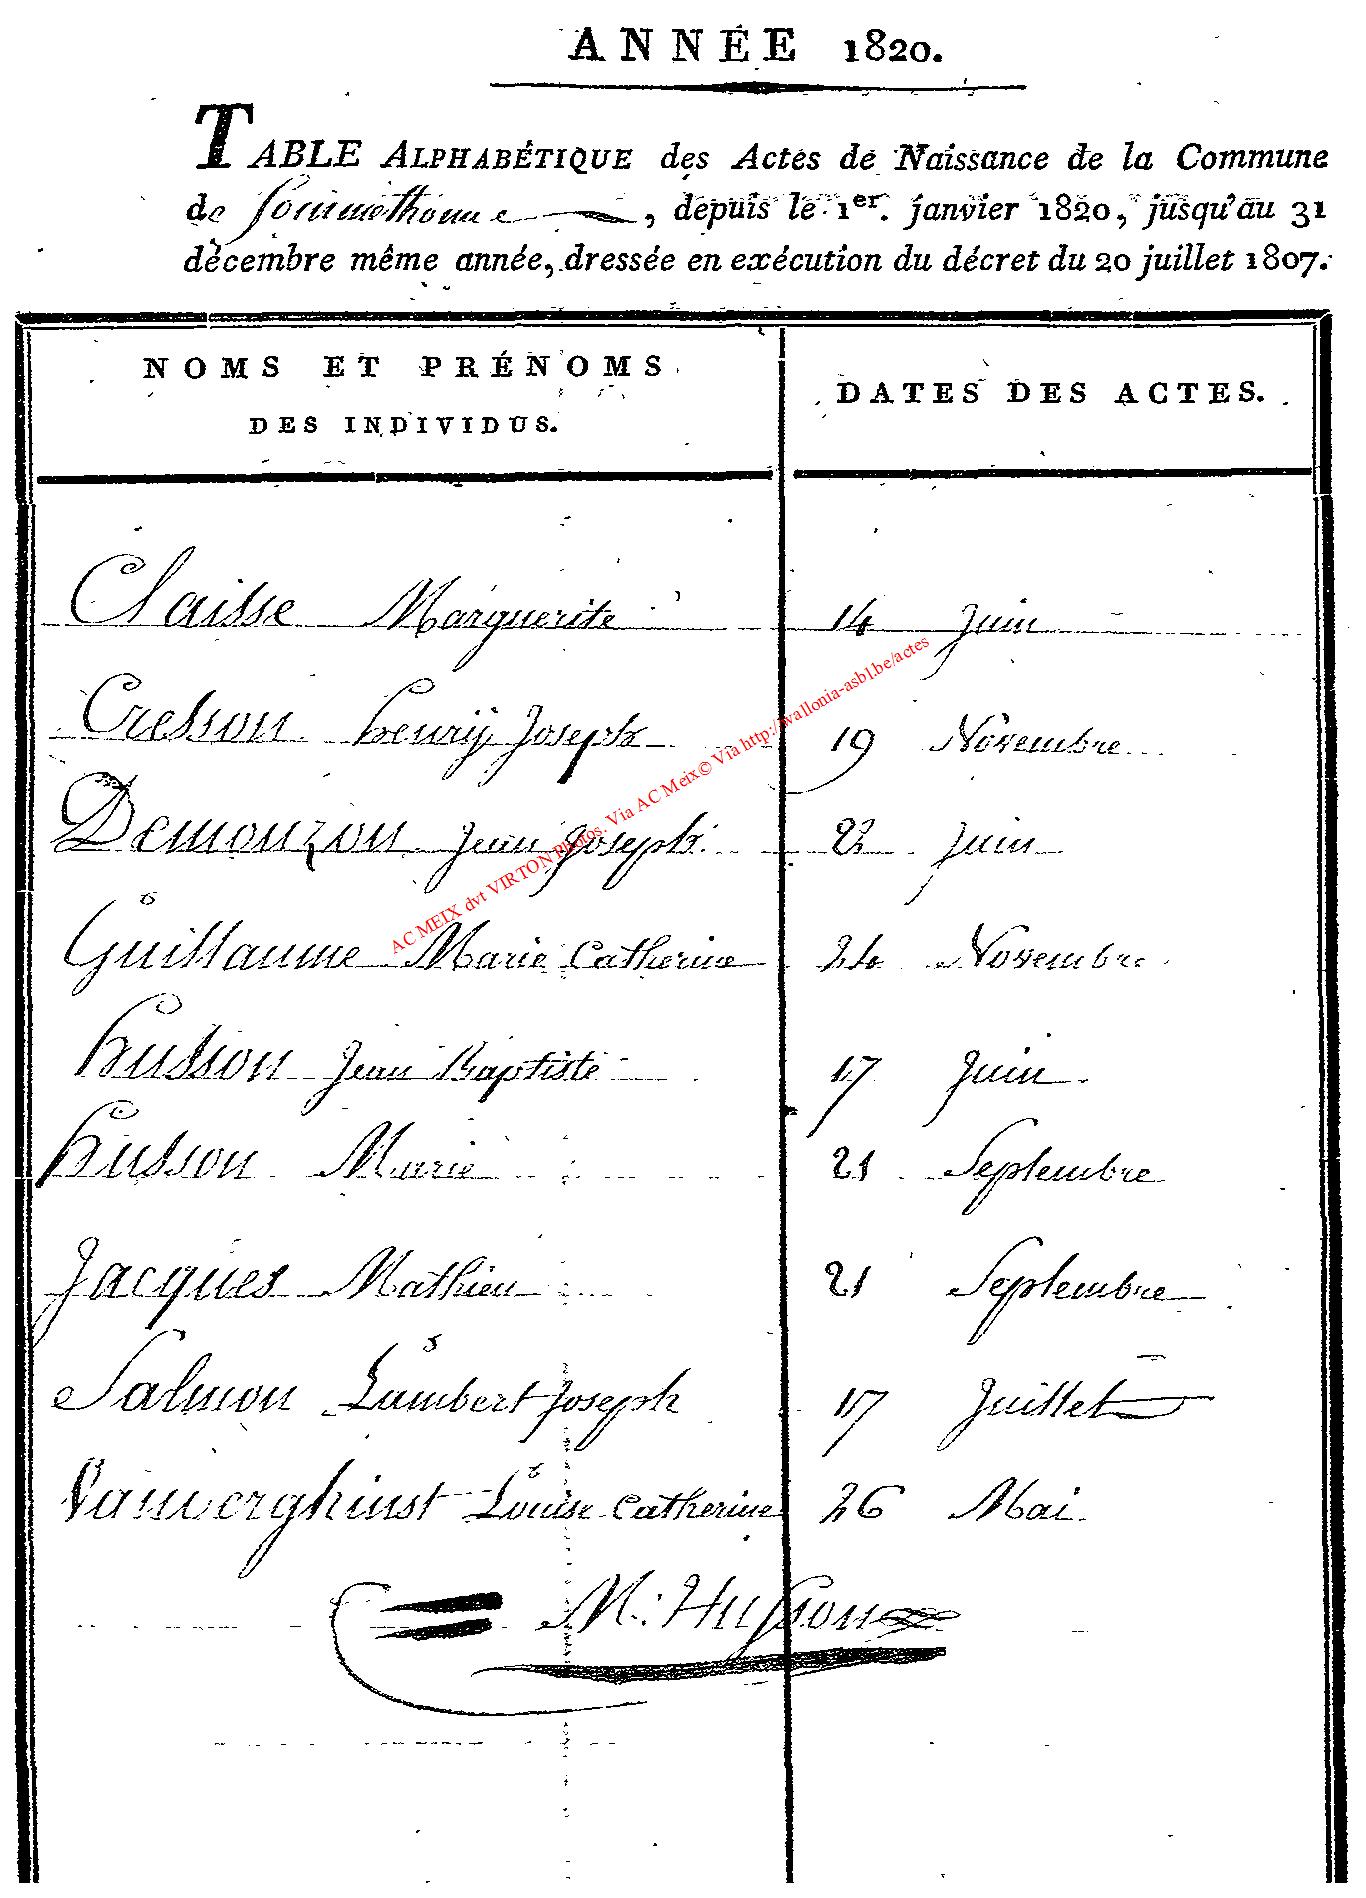 ANNÉE 1820.
TABLE ALPHABÉTIQUE des Actes de Naissance de la Commune
de Sommethonne, depuis le 1er. janvier 1820, jusqu'au 31
décembre même année, dressée en exécution du décret du 20 juillet 1807.
NOMS ET PRÉNOMS
DES INDIVIDUS.
DATES DES ACTES.
Claisse Marguerite 14 Juin
Cresson henry Joseph 19 Novembre
Demonzon Jean Joseph 22 Juin
Guillaume Marie Catherine 24 Novembre
husson Jean Baptiste 17 Juin
husson Marie 21 Septembre
Jacques Mathieu 21 Septembre
Salmon Lambert Joseph 17 Juillet
Vanverghinst Louise Catherine 26 Mai
M: Husson
AC MEIX dvt VIRTON Photos. Via AC Meix© Via http://wallonia-asbl.be/actes